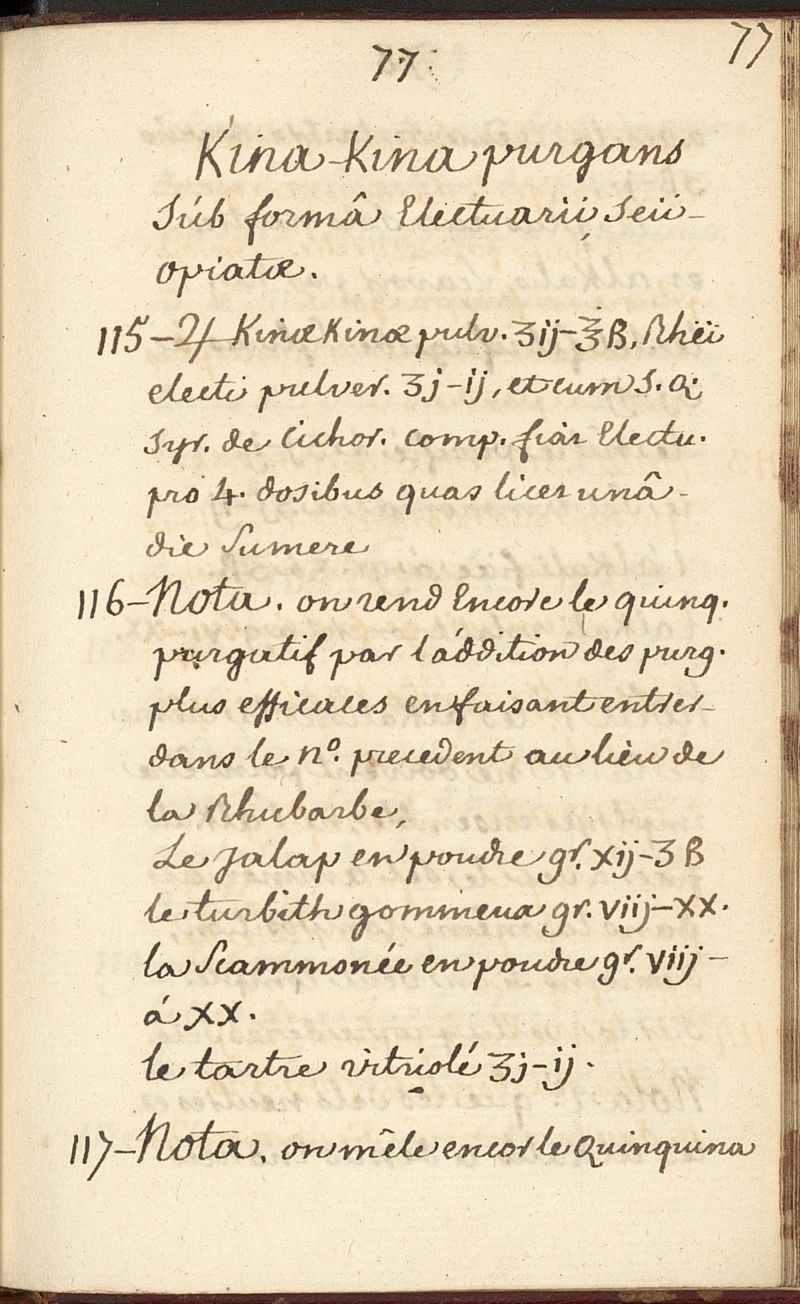 77
77
Kina-Kina purgans
Sub formâ Electuarii, Seu
opiatæ.
115-♃ Kinæ Kinæ pulv. ʒij-℥ß, Rhei
electi pulver. ʒj-ij, et cum S. Q.
Syr. de Cichor. comp. fiat Electu.
pro 4. dosibus quas licet unâ
die Sumere
116-Nota. on rend Encore le quinq.
purgatif par l'áddition des purg.
plus efficaces en faisant entrer
dans le n.º precedent au lieu de
la Rhubarbe,
Le Jalap en poudre gr. xij-ʒß
le turbith gommeux gr. viij-xx.
la Scammonée en poudre gr. viij-
á xx.
le tartre vitriolé ʒj-ij.
117-Nota. on mêle encor le Quinquina